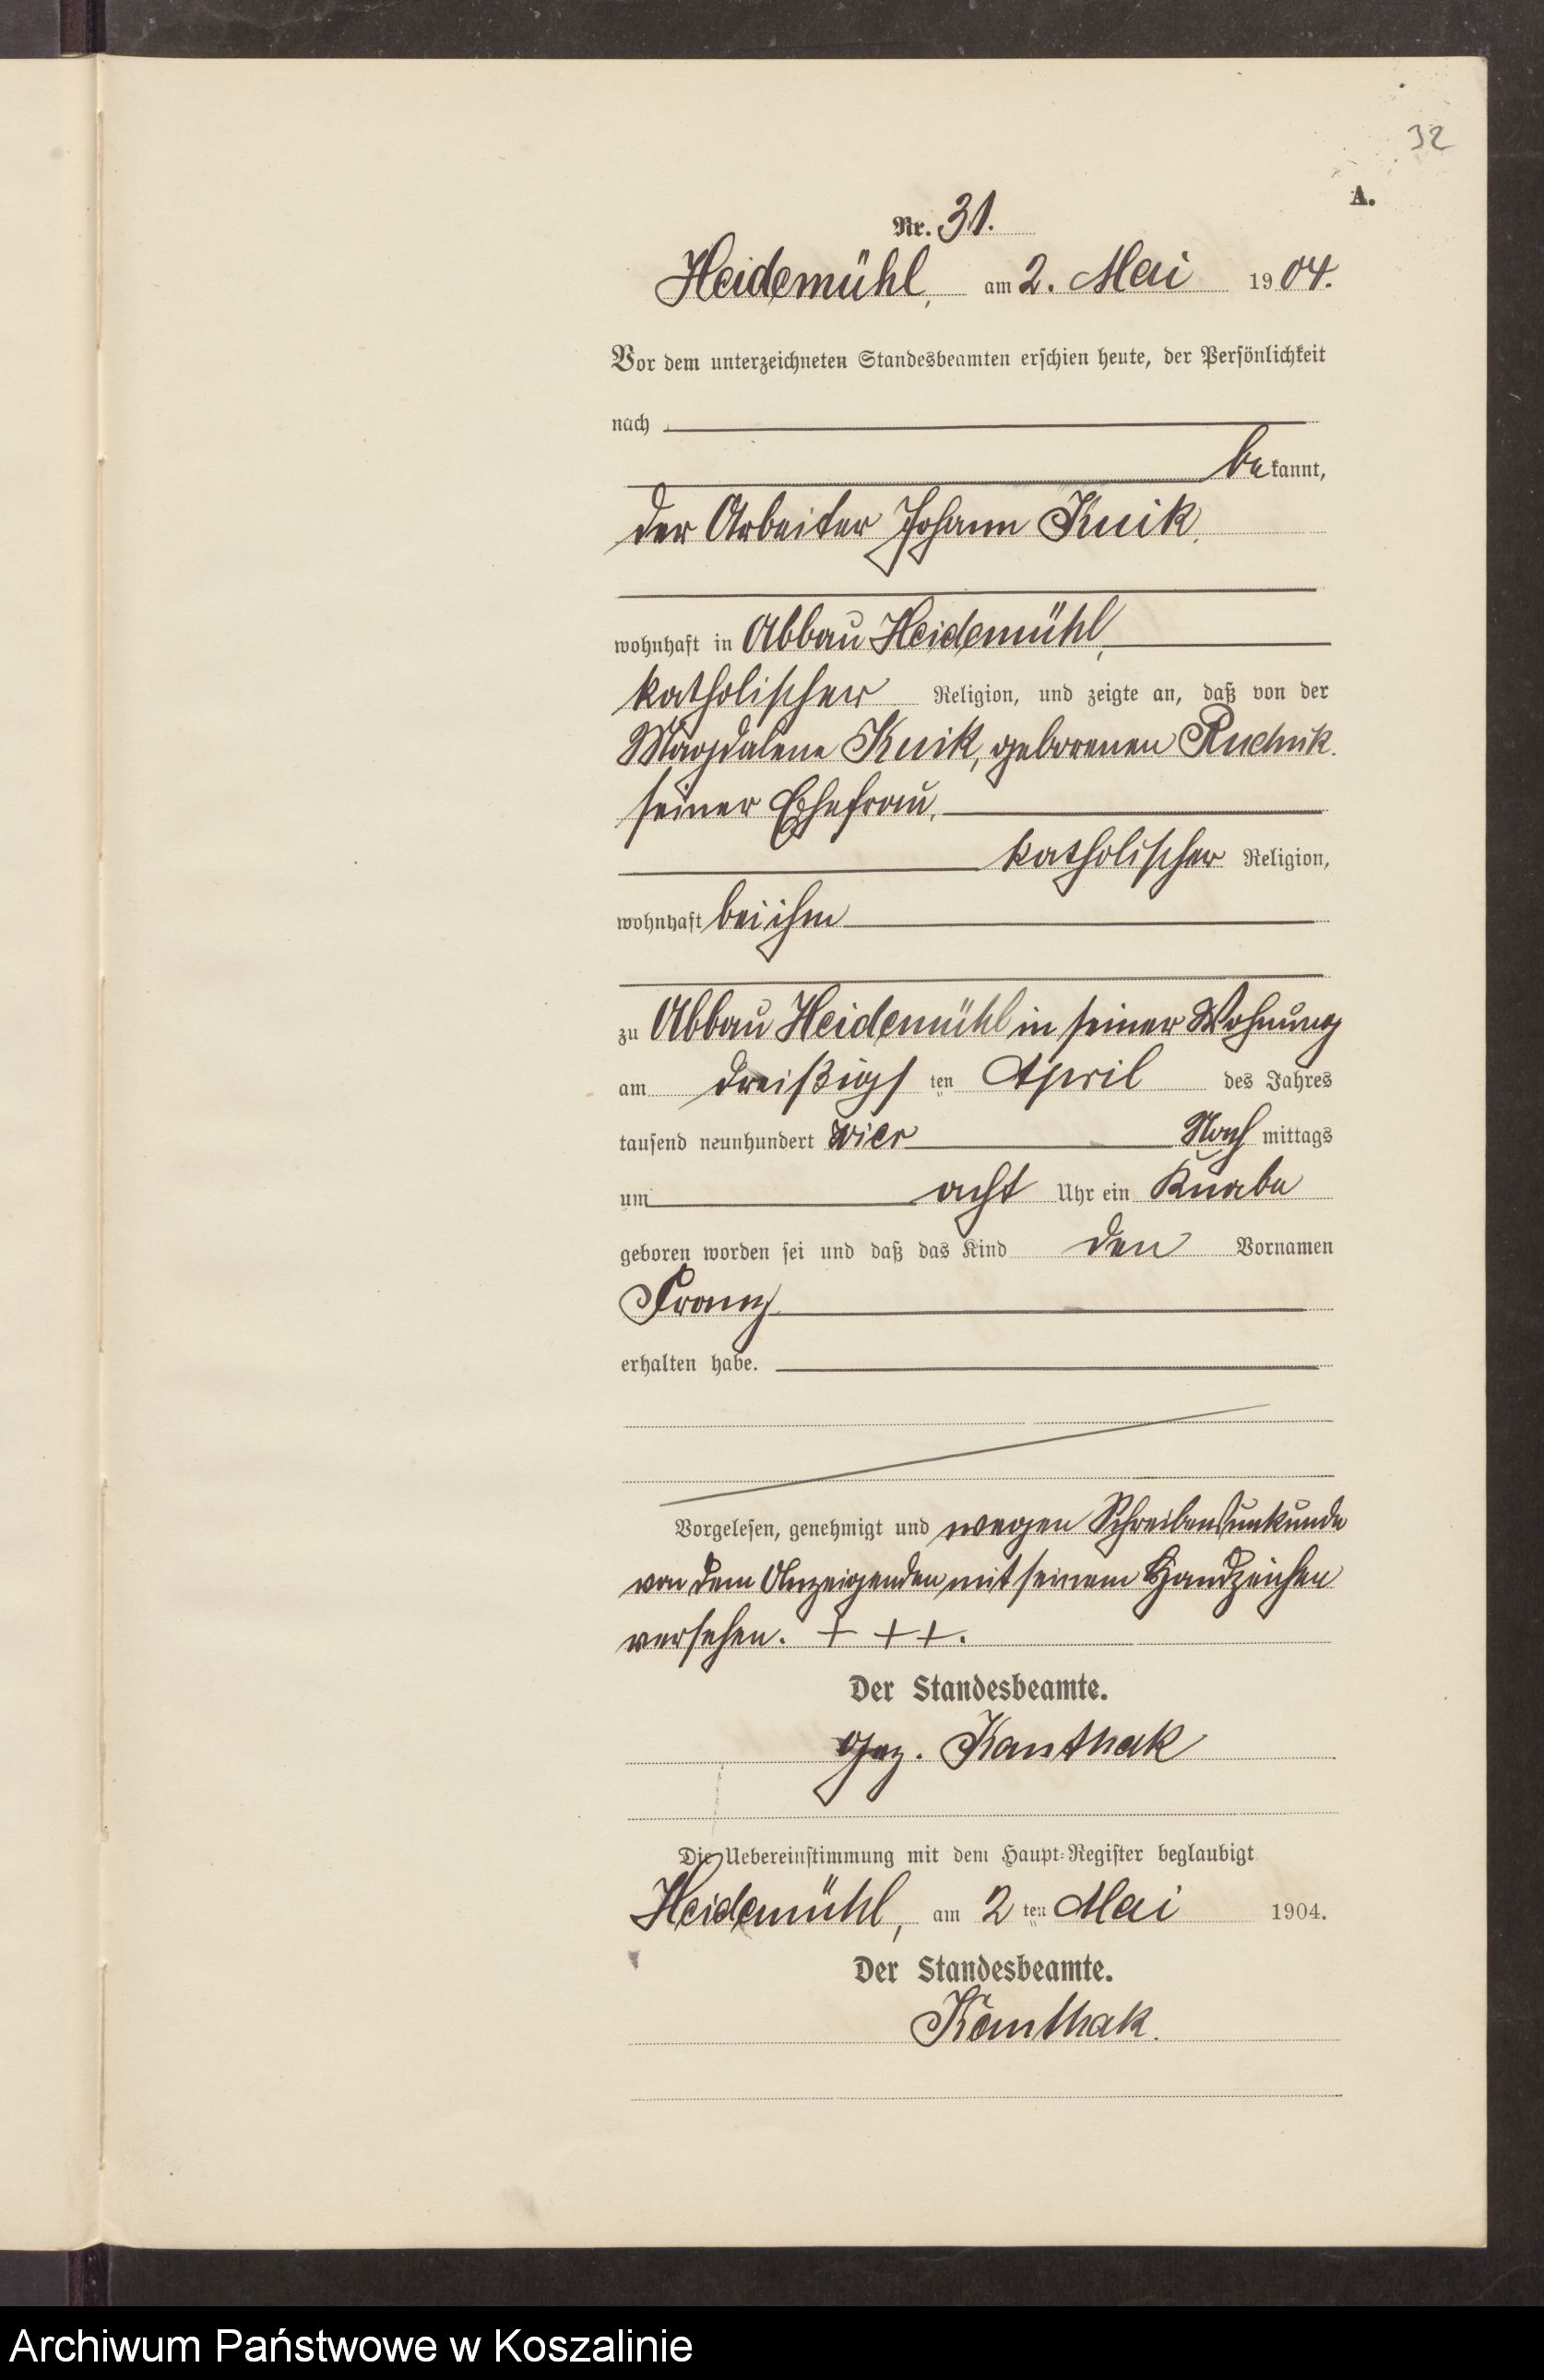 32
A.
Nr. 31.
Heidemühl, am 2. Mai 1904.
Vor dem unterzeichneten Standesbeamten erschien heute, der Persönlichkeit
nach
bekannt,
der Arbeiter Johann Knik,
wohnhaft in Abbau Heidemühl,
katholischer Religion, und zeigte an, daß von der
Magdalene Knik, geborenen Rudnik
seiner Ehefrau,
katholischer Religion,
wohnhaft bei ihm
zu Abbau Heidemühl in seiner Wohnung
am dreißigsten April des Jahres
tausend neunhundert vier Nachmittags
um acht Uhr ein Knabe
geboren worden sei und daß das Kind den Vornamen
Franz
erhalten habe.
Vorgelesen, genehmigt und wegen Schreibensunkunde
von dem Anzeigenden mit seinem Handzeichen
versehen. + + +.
Der Standesbeamte.
gez. Kanthak
Die Uebereinstimmung mit dem Haupt-Register beglaubigt
Heidemühl, am 2ten Mai 1904.
Der Standesbeamte.
Kanthak.
Archiwum Państwowe w Koszalinie